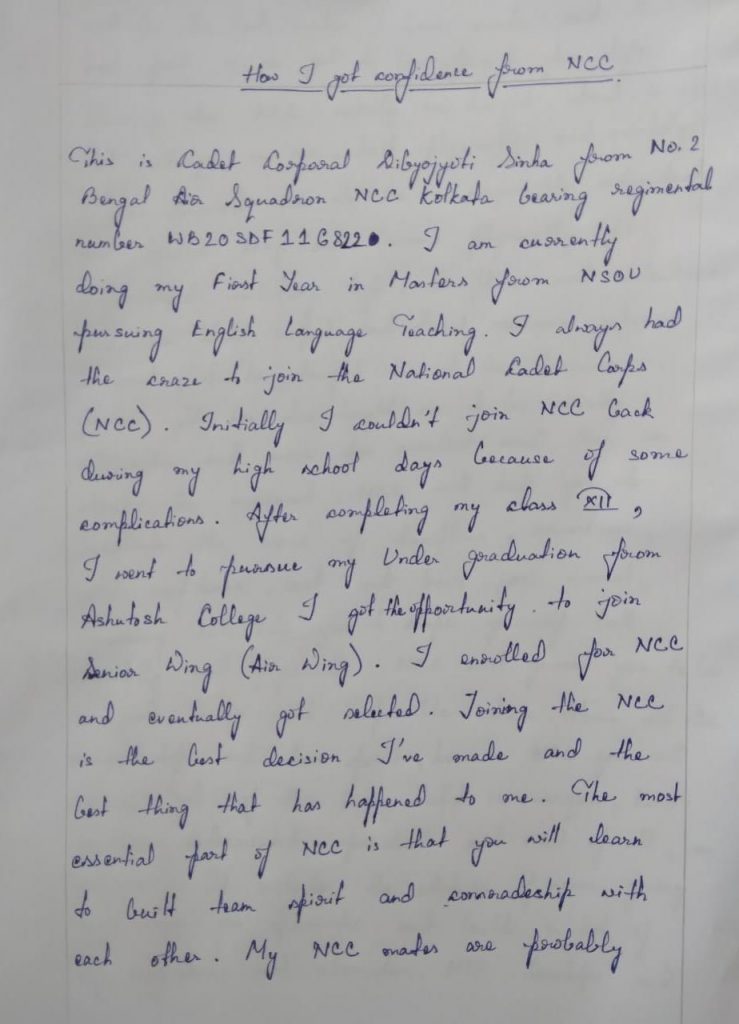 How I got confidence from NCC.
This is Cadet Corporal Dibyojyoti Sinha from No. 2
Bengal Air Squadron NCC Kolkata bearing regimental
number WB20SDF11G8220. I am currently
doing my First Year in Masters from NSOU
pursuing English Language Teaching. I always had
the craze to join the National Cadet Corps
(NCC). Initially I couldn't join NCC back
during my high school days because of some
complications. After completing my class XII,
I went to pursue my Under graduation from
Ashutosh College I got the opportunity. to join
Senior Wing (Air Wing). I enrolled for NCC
and eventually got selected. Joining the NCC
is the best decision I've made and the
best thing that has happened to me. The most
essential part of NCC is that you will learn
to built team spirit and comradeship with
each other. My NCC mates are probably